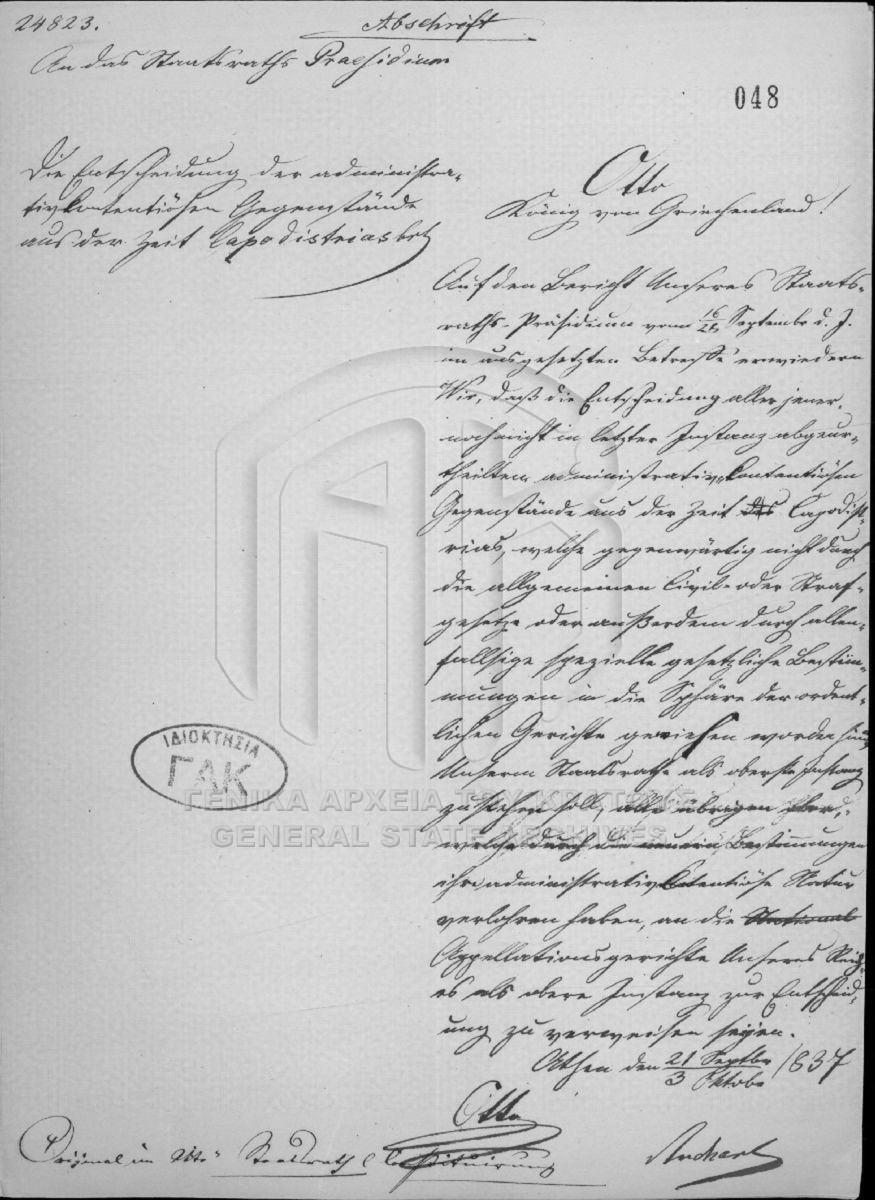 24823.
Abschrift
An das Staatsraths Praesidium
048
Die Entscheidung der administra-
tiv kontentiösen Gegenstände
aus der Zeit Capodistrias btr
Otto
König von Griechenland!
Auf den Bericht Unseres Staats-
raths-Präsidium vom 16/28 Septembr d. J.
im ausgesetzten Betreffe erwiedern
Wir, daß die Entscheidung aller jener,
noch nicht in letzter Instanz abgeur-
theilten administrativ kontentiösen
Gegenstände aus der Zeit des Capodist-
rias, welche gegenwärtig nicht durch
die allgemeinen Civil- oder Straf-
gesetze oder außerdem durch allen-
fallsige spezielle gesetzliche Bestim-
mungen in die Sphäre der ordent-
lichen Gerichte gewiesen worden sind
Unserm Staatsrathe als oberste Instanz
zustehen soll, alle übrigen aber,
welche durch die neuern Bestimmungen
ihre administrativ kontentiöse Natur
verlohren haben, an die
Appellationsgerichte Unseres Reich-
es als obere Instanz zur Entscheid-
ung zu verweisen seyen.
Athen den 21 Septbr / 3 Oktobr 1837
Otto
Original im Akte Staatsrath Constituirung
ΙΔΙΟΚΤΗΣΙΑ
ΓΑΚ
ΓΕΝΙΚΑ ΑΡΧΕΙΑ ΤΟΥ ΚΡΑΤΟΥΣ
GENERAL STATE ARCHIVES